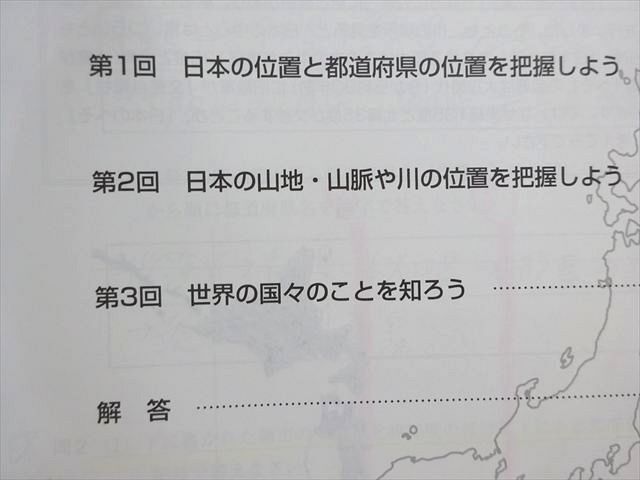 第1回 日本の位置と都道府県の位置を把握しよう
第2回 日本の山地・山脈や川の位置を把握しよう
第3回 世界の国々のことを知ろう
解 答